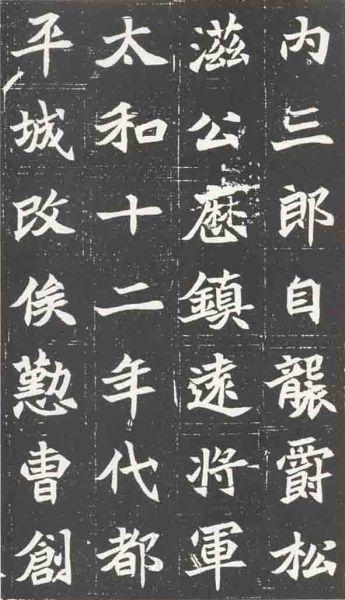 内三郎自襲爵松
滋公歷鎮遠将軍
太和十二年代都
平城改俟懃曹創